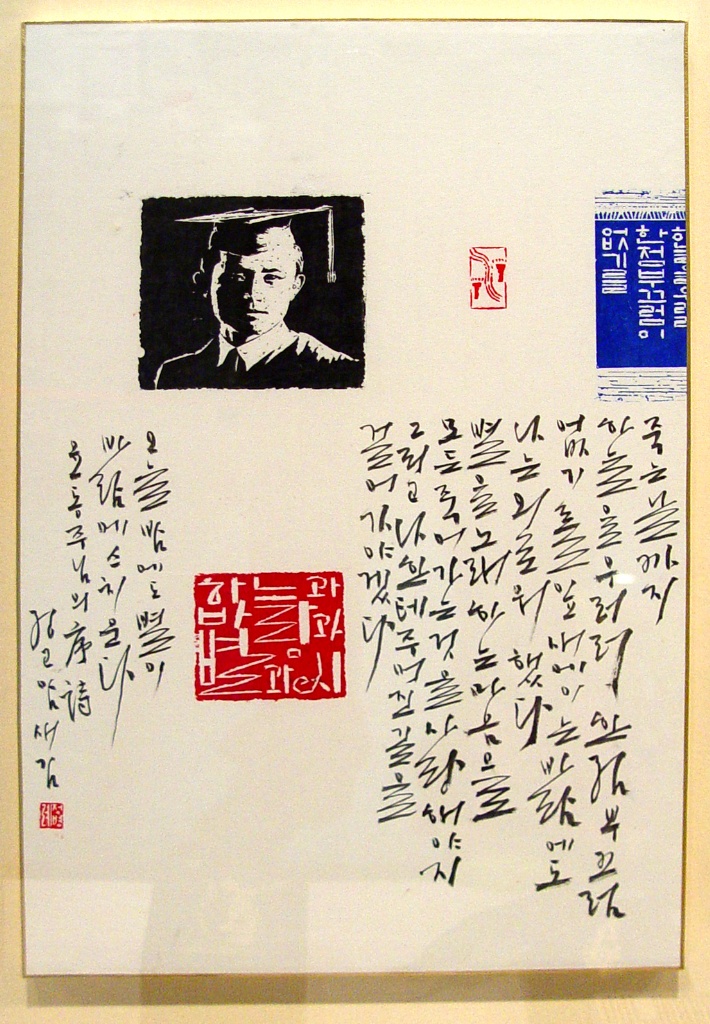 하늘을
한점부끄럼이
없기를
죽는날까지
하늘을우러러 한점부끄럼
없기를 잎새에이는바람에도
나는 괴로워 했다
별을노래하는마음으로
모든죽어가는것을사랑해야지
그리고나한테주어진길을
걸어가야겠다
하늘과
바람과
별과시
오늘밤에도별이
바람에스치운다
윤동주님의序詩
정고암새김